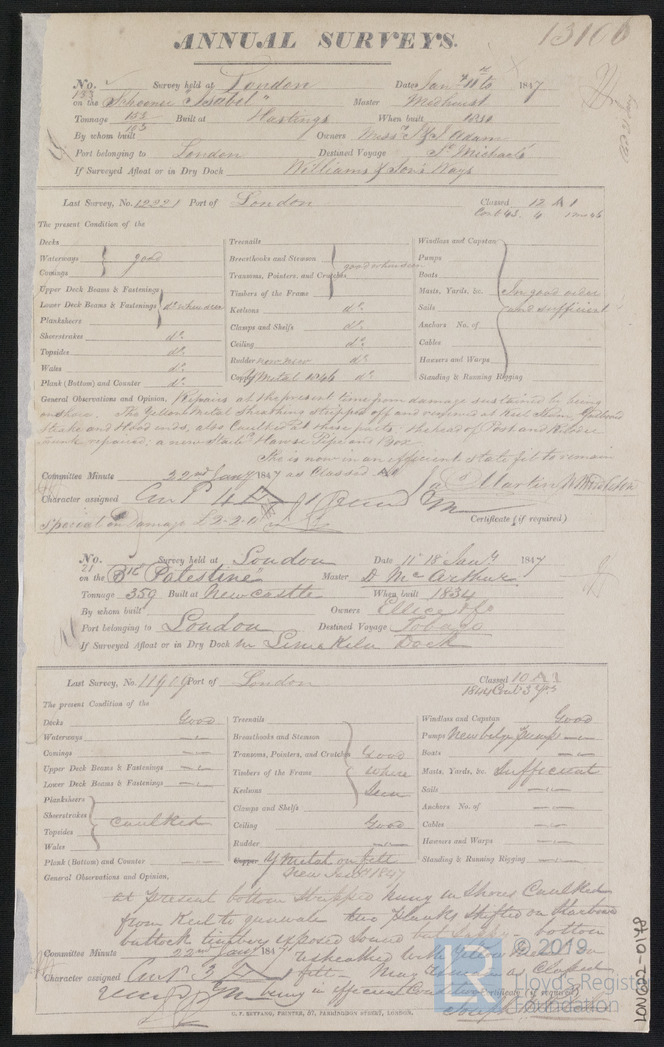 13100
ANNUAL SURVEYS.
No. 183 Survey held at London Date Jany 11th 1847
on the Schooner "Isabel" Master
Tonnage 153 Built at Hastings When built 1830
153
By whom built Owners Adam
Port belonging to London Destined Voyage St Michaels
If Surveyed Afloat or in Dry Dock Williams & Sons Ways
Last Survey, No. 12221 Port of London Classed 12 A 1
Cont 45. 4
The present Condition of the
Decks
Waterways good
Comings
Upper Deck Beams & Fastenings
Lower Deck Beams & Fastenings do when seen
Planksheers
Sheerstrakes do
Topsides do
Wales do
Plank (Bottom) and Counter do
Treenails
Breasthooks and Stemson good when seen
Transoms, Pointers, and Crutches
Timbers of the Frame
Keelsons do
Clamps and Shelfs do
Ceiling do
Rudder now new do
Copper Y Metal 1846 do
Windlass and Capstan
Pumps
Boats
Masts, Yards, &c. In good order
Sails and sufficient
Anchors No. of
Cables
Hawsers and Warps
Standing & Running Rigging
General Observations and Opinion, Repairs at the present time from damage sustained by being
onshore. The Yellow Metal Sheathing stripped off and reopened at Keel Stem, Garboard
Strake and Hood ends, also Caulked at these parts; the head of Post and Rudder
Trunk repaired; a new Hawse Pipe and Box.
She is now in an efficient state fit to remain
Committee Minute 22nd Jany 1847 as Classed
Character assigned Cont 4 A 1 Jas Martin
Special on Damage £2-2-0 Certificate (if required)
No. 21 Survey held at London Date 11 & 18 Jany 1847
on the Bk "Palestine" Master D McArthur
Tonnage 359 Built at Newcastle When built 1834
By whom built Owners Ellice & Co
Port belonging to London Destined Voyage Tobago
If Surveyed Afloat or in Dry Dock in Limekiln Dock
Last Survey, No. 11919 Port of London Classed 10 A 1
1844 Cont 3 Yrs
The present Condition of the
Decks Good
Waterways
Comings
Upper Deck Beams & Fastenings
Lower Deck Beams & Fastenings
Planksheers
Sheerstrakes caulked
Topsides
Wales
Plank (Bottom) and Counter
Treenails
Breasthooks and Stemson
Transoms, Pointers, and Crutches Good
Timbers of the Frame where
Keelsons Seen
Clamps and Shelfs
Ceiling Good
Rudder
Copper Y Metal on felt
New Jany 1847
Windlass and Capstan Good
Pumps New bilge Pumps
Boats
Masts, Yards, &c. Sufficient
Sails
Anchors No. of
Cables
Hawsers and Warps
Standing & Running Rigging
General Observations and Opinion,
at present bottom stripped hung in Shores Caulked
from Keel to gunwale two planks shifted on Starboard
buttock timbers exposed Sound bottom
Committee Minute 22nd Jany 1847 resheathed with Yellow Metal on
Character assigned Cont 3 A 1 felt - May remain as Classed
being in efficient Condition
Certificate (if required)
C. F. SEYFANG, PRINTER, 57, FARRINGDON STREET, LONDON.
© 2019
LR Lloyd's Register
Foundation
LON622-0178